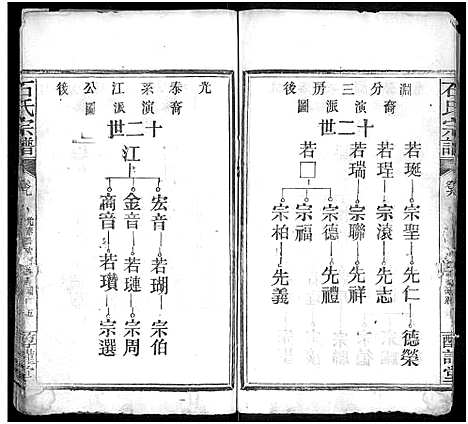 石氏宗譜
卷九
淵分三房後
裔演派圖
十二世
若珽 宗聖 先仁 德榮
若珵 宗滾 先志
若瑞 宗聯 先祥
若□ 宗德 先禮
宗福
宗柏 先義
光泰系江公後
裔演派圖
十二世
江
宏音 若瑚 宗伯
金音 若璉 宗周
商音 若瓚 宗選
石氏宗譜
卷九